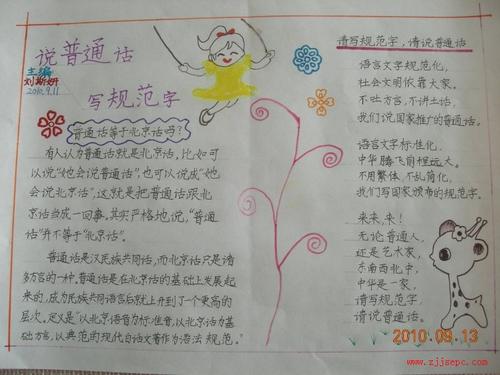 说普通话
主编
刘斯妍
2010.9.11
写规范字
普通话等于北京话吗?
有人认为普通话就是北京话,比如可
以说"他会说普通话",也可以说成"他
会说北京话",这就是把普通话跟北
京话当成一回事。其实严格地说,"普通
话"并不等于"北京话"。
普通话是汉民族共同话,而北京话只是诸
多方言的一种。普通话是在北京话的基础上发展起
来的,成为民族共同语言后就上升到了一个更高的
层次。定义是"以北京语音为标准音,以北京话为基
础方言,以典范的现代白话文著作为语法规范。"
请写规范字,请说普通话
语言文字规范化,
社会文明依靠大家。
不吐方言,不讲土话,
我们说国家推广的普通话。
语言文字标准化,
中华腾飞前程远大。
不用繁体,不乱简化,
我们写国家颁布的规范字。
来来,来!
无论普通人,
还是艺术家,
东南西北中,
中华是一家,
请写规范字,
请说普通话。
2010.09.13
www.zjjsepc.com